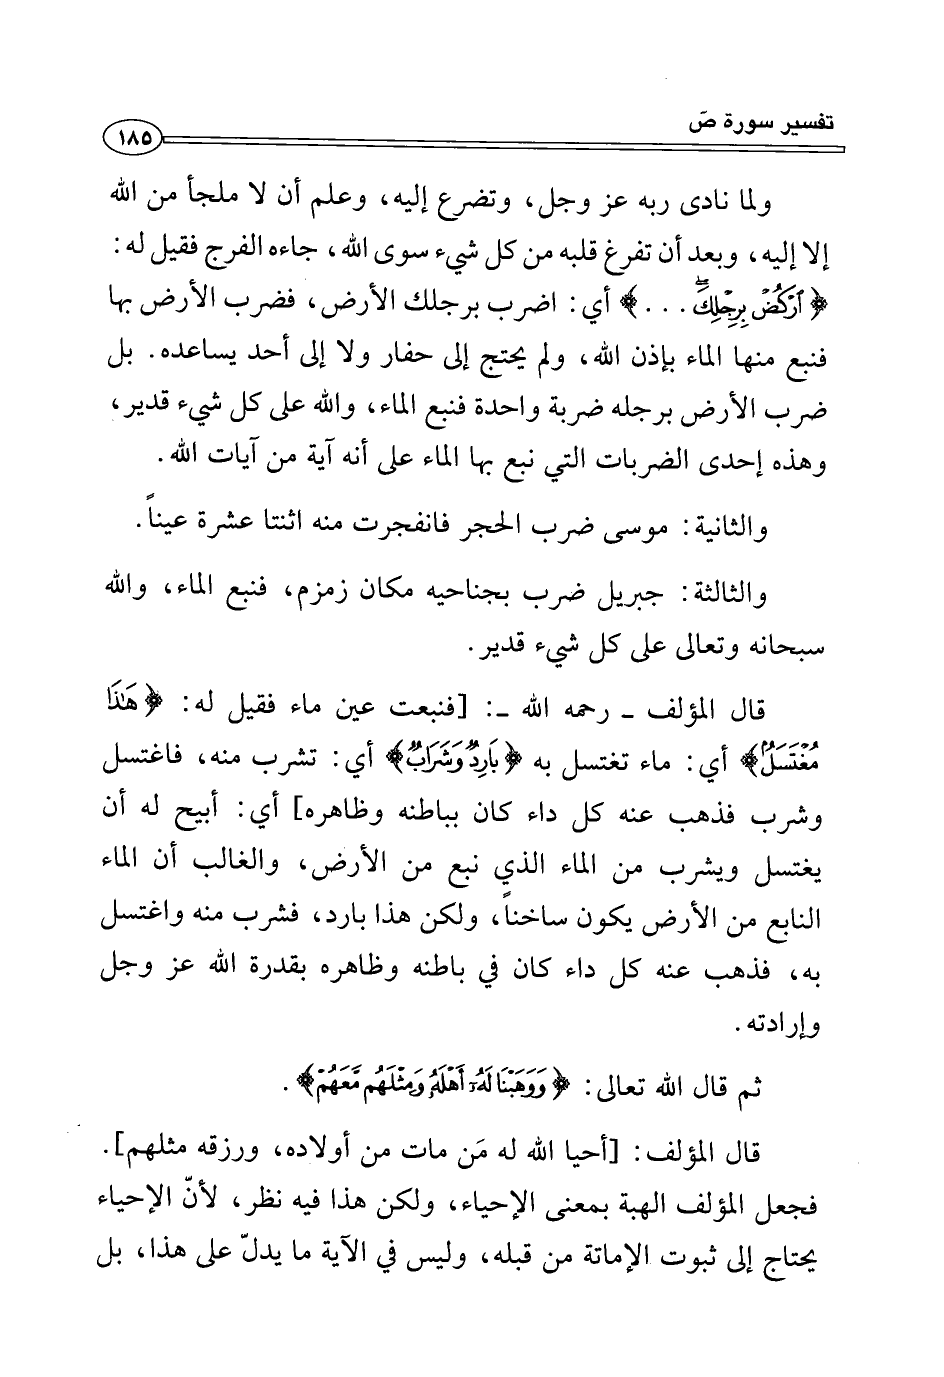 تفسير سورة صَ
١٨٥
ولما نادى ربه عز وجل، وتضرع إليه، وعلم أن لا ملجأ من الله
إلا إليه، وبعد أن تفرغ قلبه من كل شيء سوى الله، جاءه الفرج فقيل له:
﴿ٱرْكُضْ بِرِجْلِكَ ۖ . . .﴾ أي: اضرب برجلك الأرض، فضرب الأرض بها
فنبع منها الماء بإذن الله، ولم يحتج إلى حفار ولا إلى أحد يساعده. بل
ضرب الأرض برجله ضربة واحدة فنبع الماء، والله على كل شيء قدير،
وهذه إحدى الضربات التي نبع بها الماء على أنه آية من آيات الله.
والثانية: موسى ضرب الحجر فانفجرت منه اثنتا عشرة عيناً.
والثالثة: جبريل ضرب بجناحيه مكان زمزم، فنبع الماء، والله
سبحانه وتعالى على كل شيء قدير.
قال المؤلف ـ رحمه الله ـ: [فنبعت عين ماء فقيل له: ﴿هَٰذَا
مُغْتَسَلٌۢ﴾ أي: ماء تغتسل به ﴿بَارِدٌ وَشَرَابٌ﴾ أي: تشرب منه، فاغتسل
وشرب فذهب عنه كل داء كان بباطنه وظاهره] أي: أبيح له أن
يغتسل ويشرب من الماء الذي نبع من الأرض، والغالب أن الماء
النابع من الأرض يكون ساخناً، ولكن هذا بارد، فشرب منه واغتسل
به، فذهب عنه كل داء كان في باطنه وظاهره بقدرة الله عز وجل
وإرادته.
ثم قال الله تعالى: ﴿وَوَهَبْنَا لَهُۥٓ أَهْلَهُۥ وَمِثْلَهُم مَّعَهُمْ﴾.
قال المؤلف: [أحيا الله له مَن مات من أولاده، ورزقه مثلهم].
فجعل المؤلف الهبة بمعنى الإحياء، ولكن هذا فيه نظر، لأنّ الإحياء
يحتاج إلى ثبوت الإماتة من قبله، وليس في الآية ما يدلّ على هذا، بل